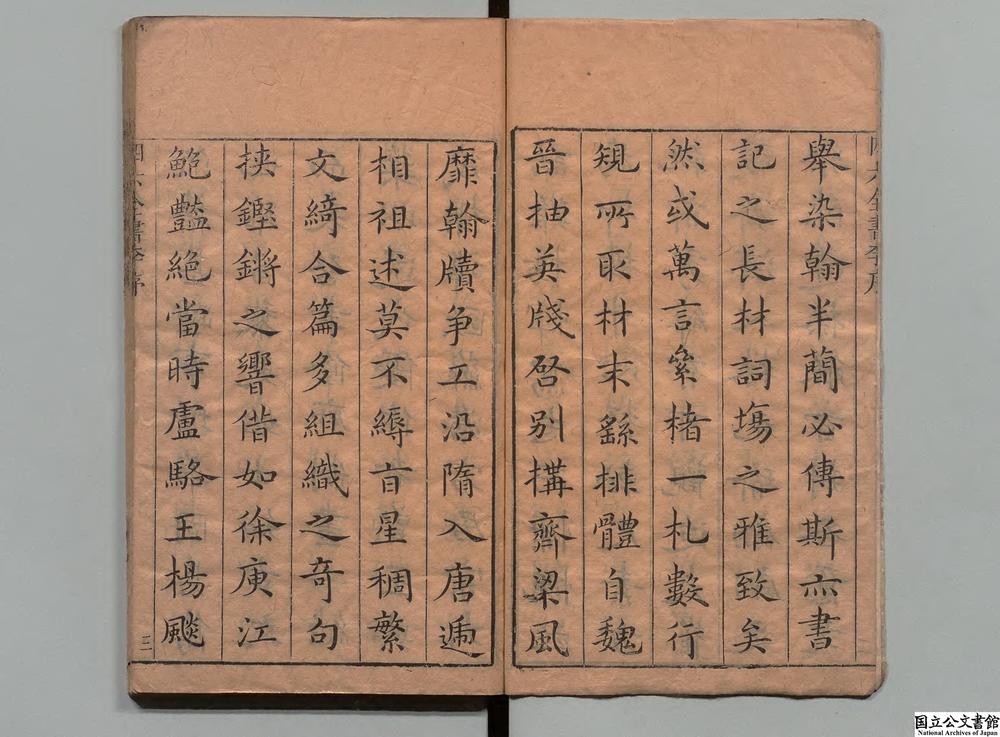 舉染翰半簡必傳斯亦書
記之長材詞塲之雅致矣
然或萬言纍楮一札數行
䂓所取材末繇排體自魏
晉抽英牋啓别搆齊梁風
靡翰牘争工沿隋入唐遞
相祖述莫不縟㫖星稠繁
文綺合篇多組織之奇句
挟鏗鏘之響偕如徐庾江
鮑豔絶當時盧駱王楊颷
三
国立公文書館
National Archives of Japan